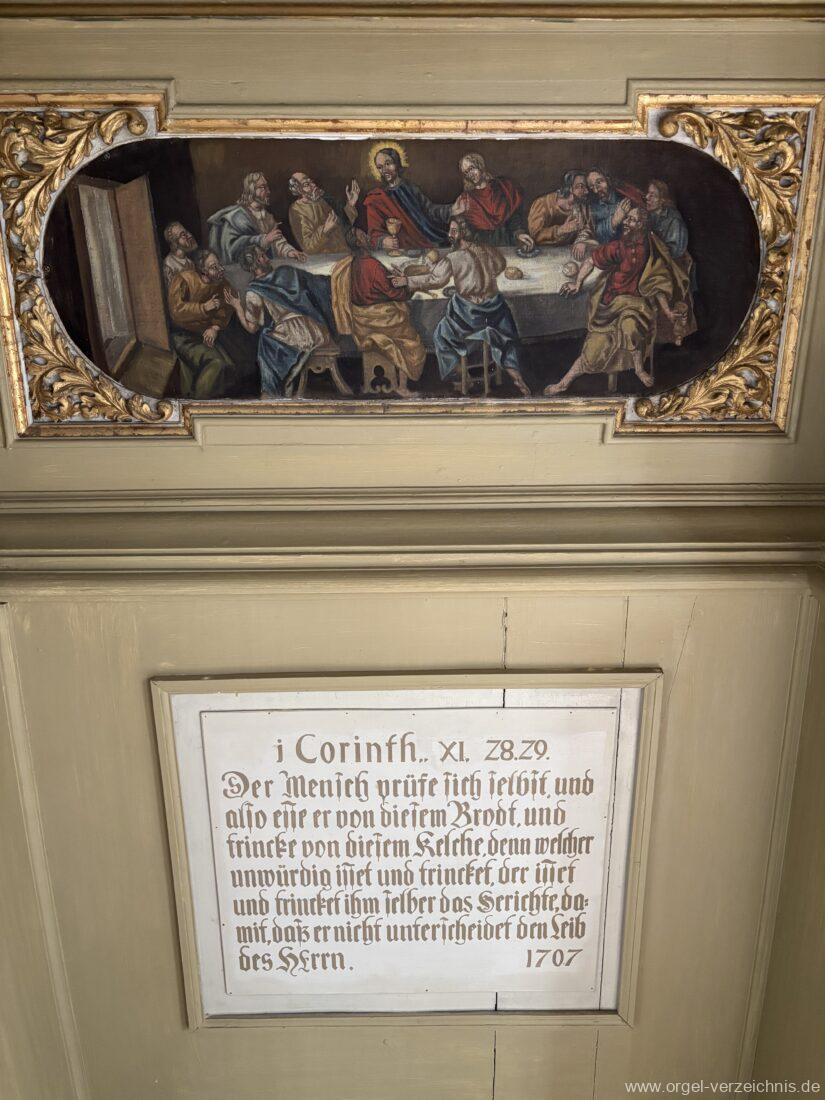 i Corinth,, XI, 28.29.
Der Mensch prüfe sich selbst, und
also esse er von diesem Brodt, und
trincke von diesem Kelche, denn welcher
unwürdig isset und trincket, der isset
und trincket ihm selber das Gerichte, da=
mit, daß er nicht unterscheidet den Leib
des HErrn. 1707
www.orgel-verzeichnis.de